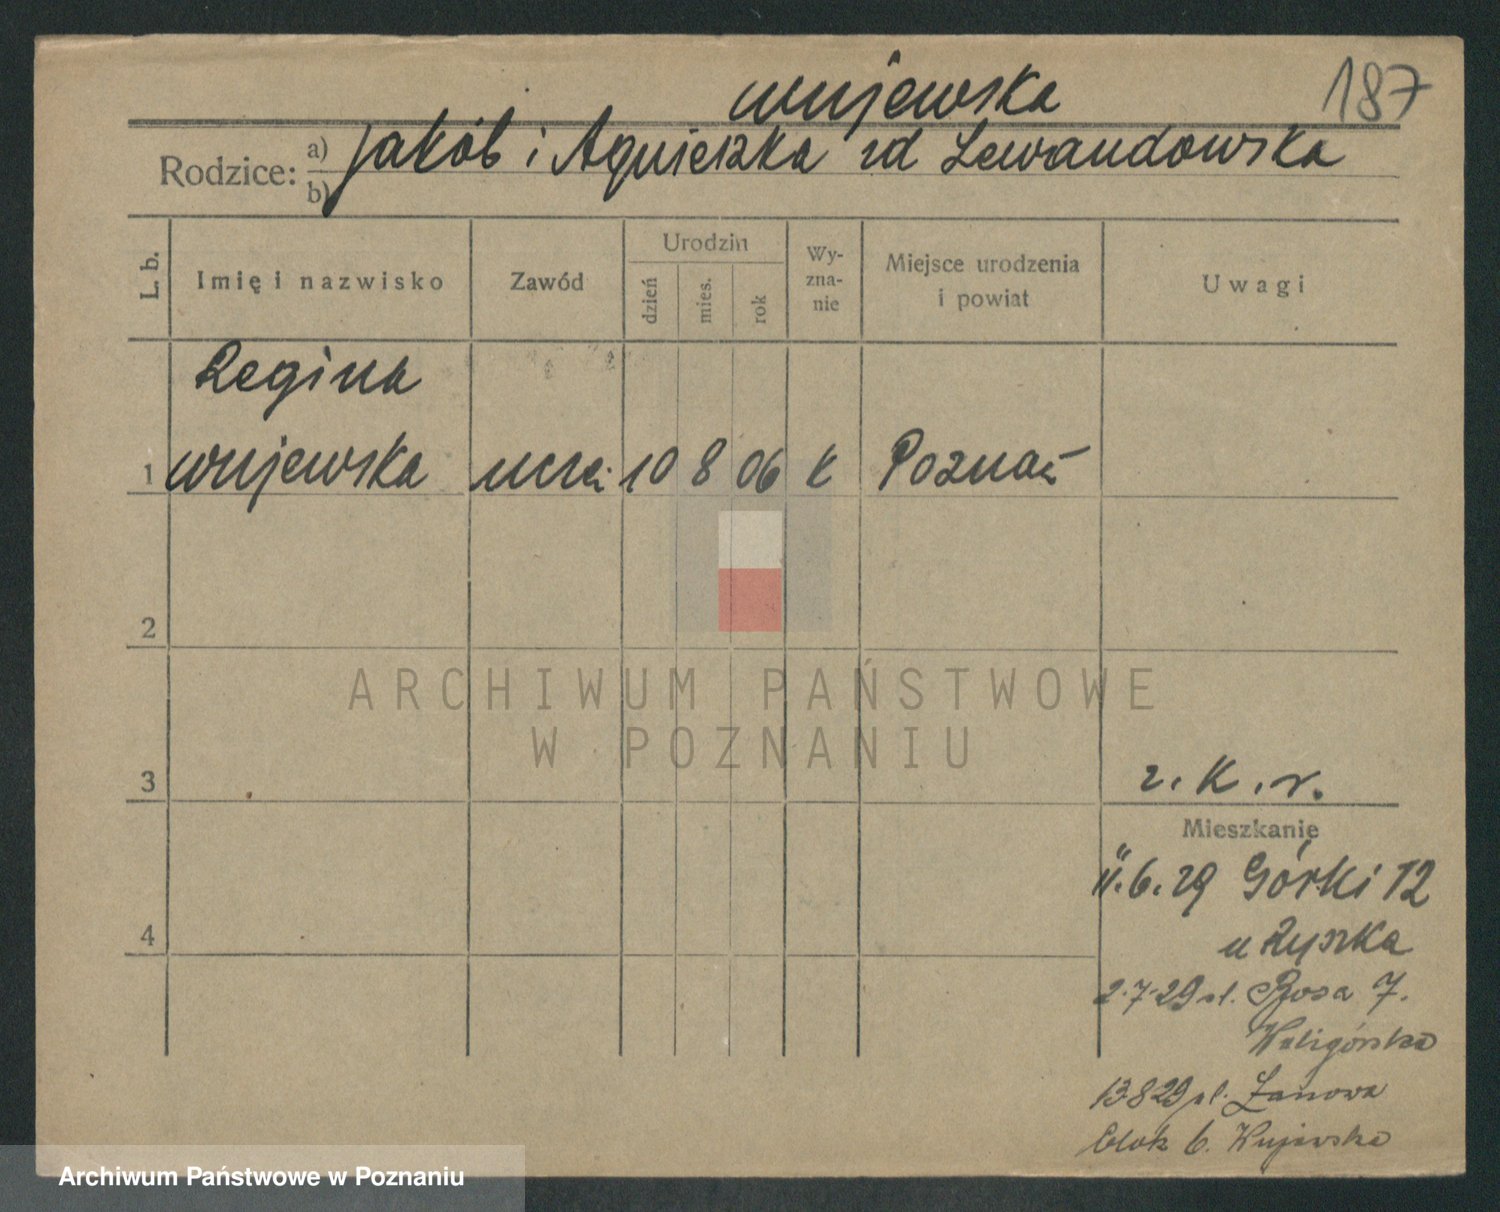 Wujewska
187
Rodzice: a) Jakób i Agnieszka zd Lewandowska
b)
L. b.
Imię i nazwisko
Zawód
Urodzin
dzień
mies.
rok
Wy-
zna-
nie
Miejsce urodzenia
i powiat
Uwagi
Regina
1 Wujewska 10 8 06 k Poznań
2
3
r. k. r.
Mieszkanie
4
11.6.29 Górki 12
u Ryszka
2.7.29 ul. Rosa 7.
Waligórska
13 8 29 ul. Łanowa
blok 6. Wujewska
ARCHIWUM PAŃSTWOWE
W POZNANIU
Archiwum Państwowe w Poznaniu